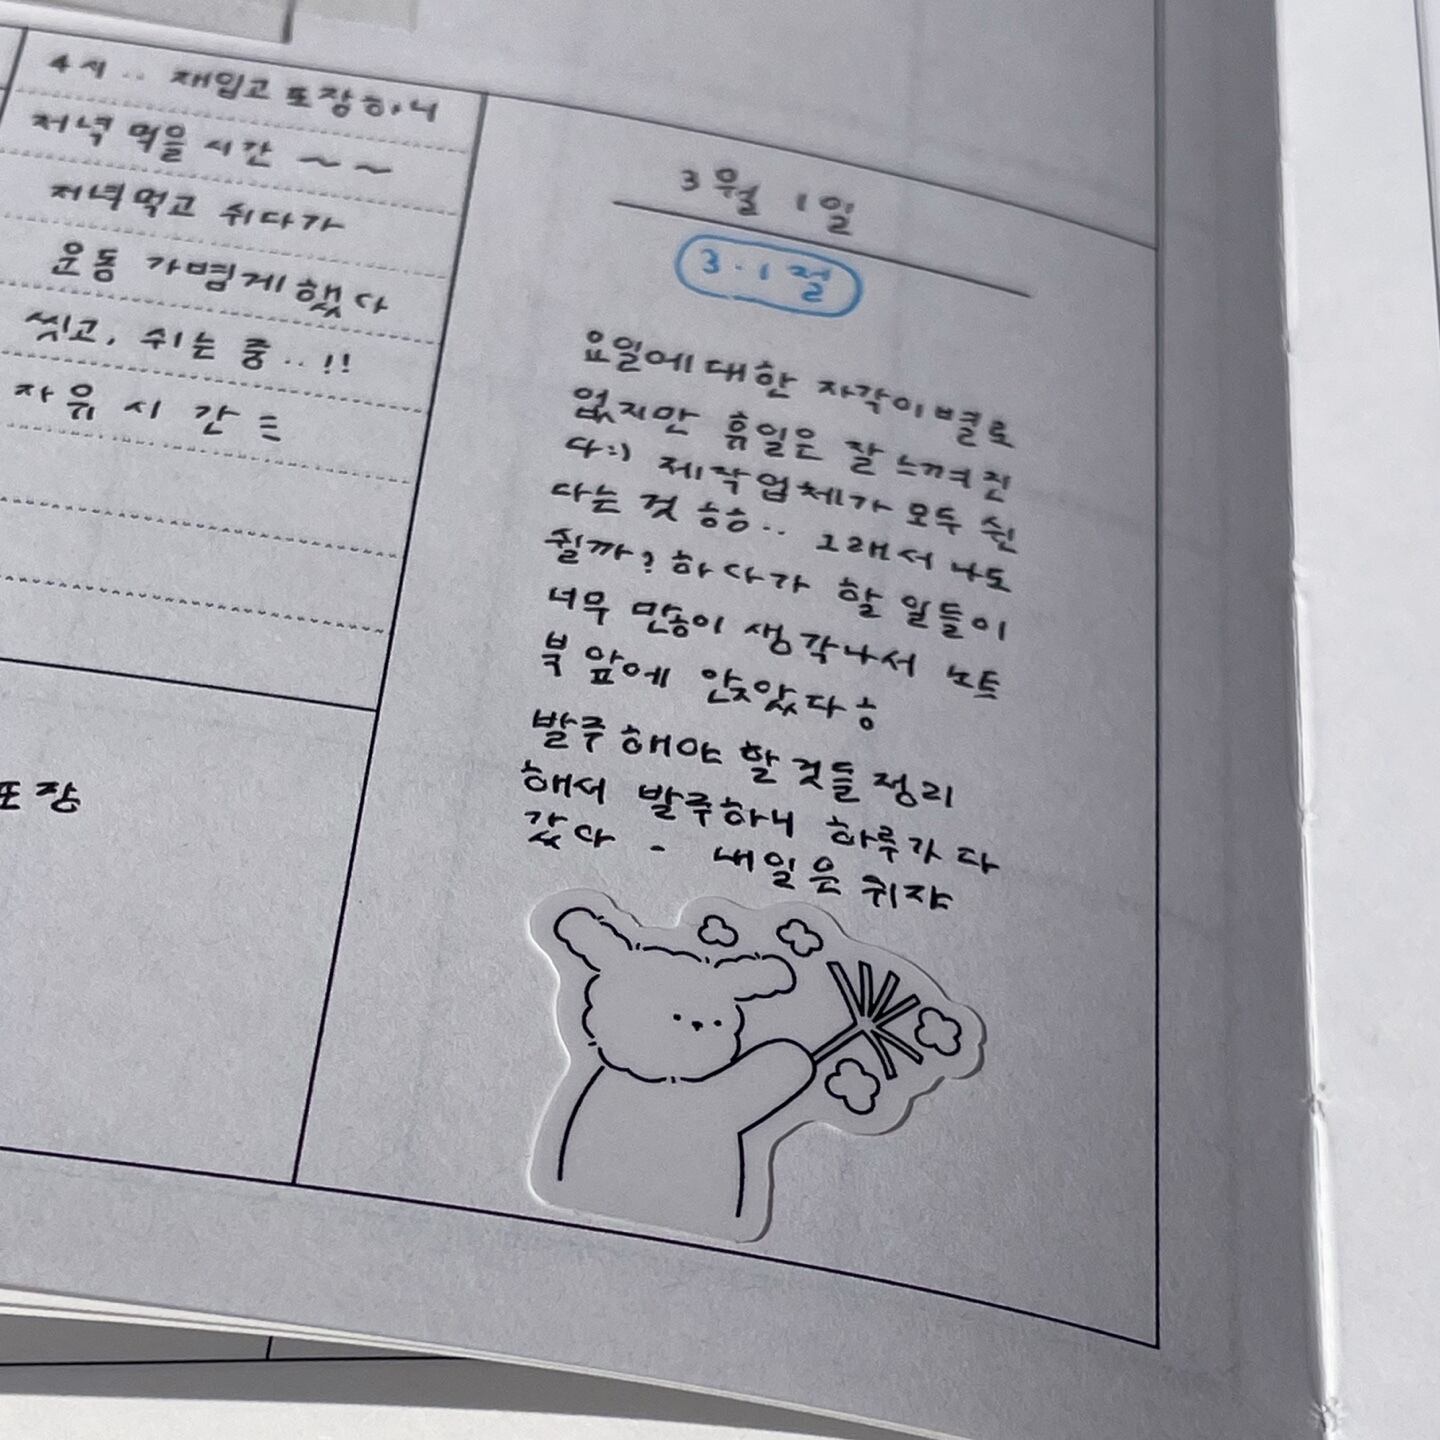 4시.. 재입고 포장하니
저녁 먹을 시간 ~~
저녁먹고 쉬다가
운동 가볍게 했다
씻고, 쉬는 중..!!
자유 시간 三
포장
3월 1일
3.1절
요일에 대한 자각이 별로
없지만 휴일은 잘 느껴진
다:) 제작업체가 모두 쉰
다는 것 ㅎㅎ.. 그래서 나도
쉴까? 하다가 할 일들이
너무 많이 생각나서 노트
북 앞에 앉았다ㅎ
발주 해야 할 것들 정리
해서 발주하니 하루가 다
갔다 - 내일은 쉬쟈